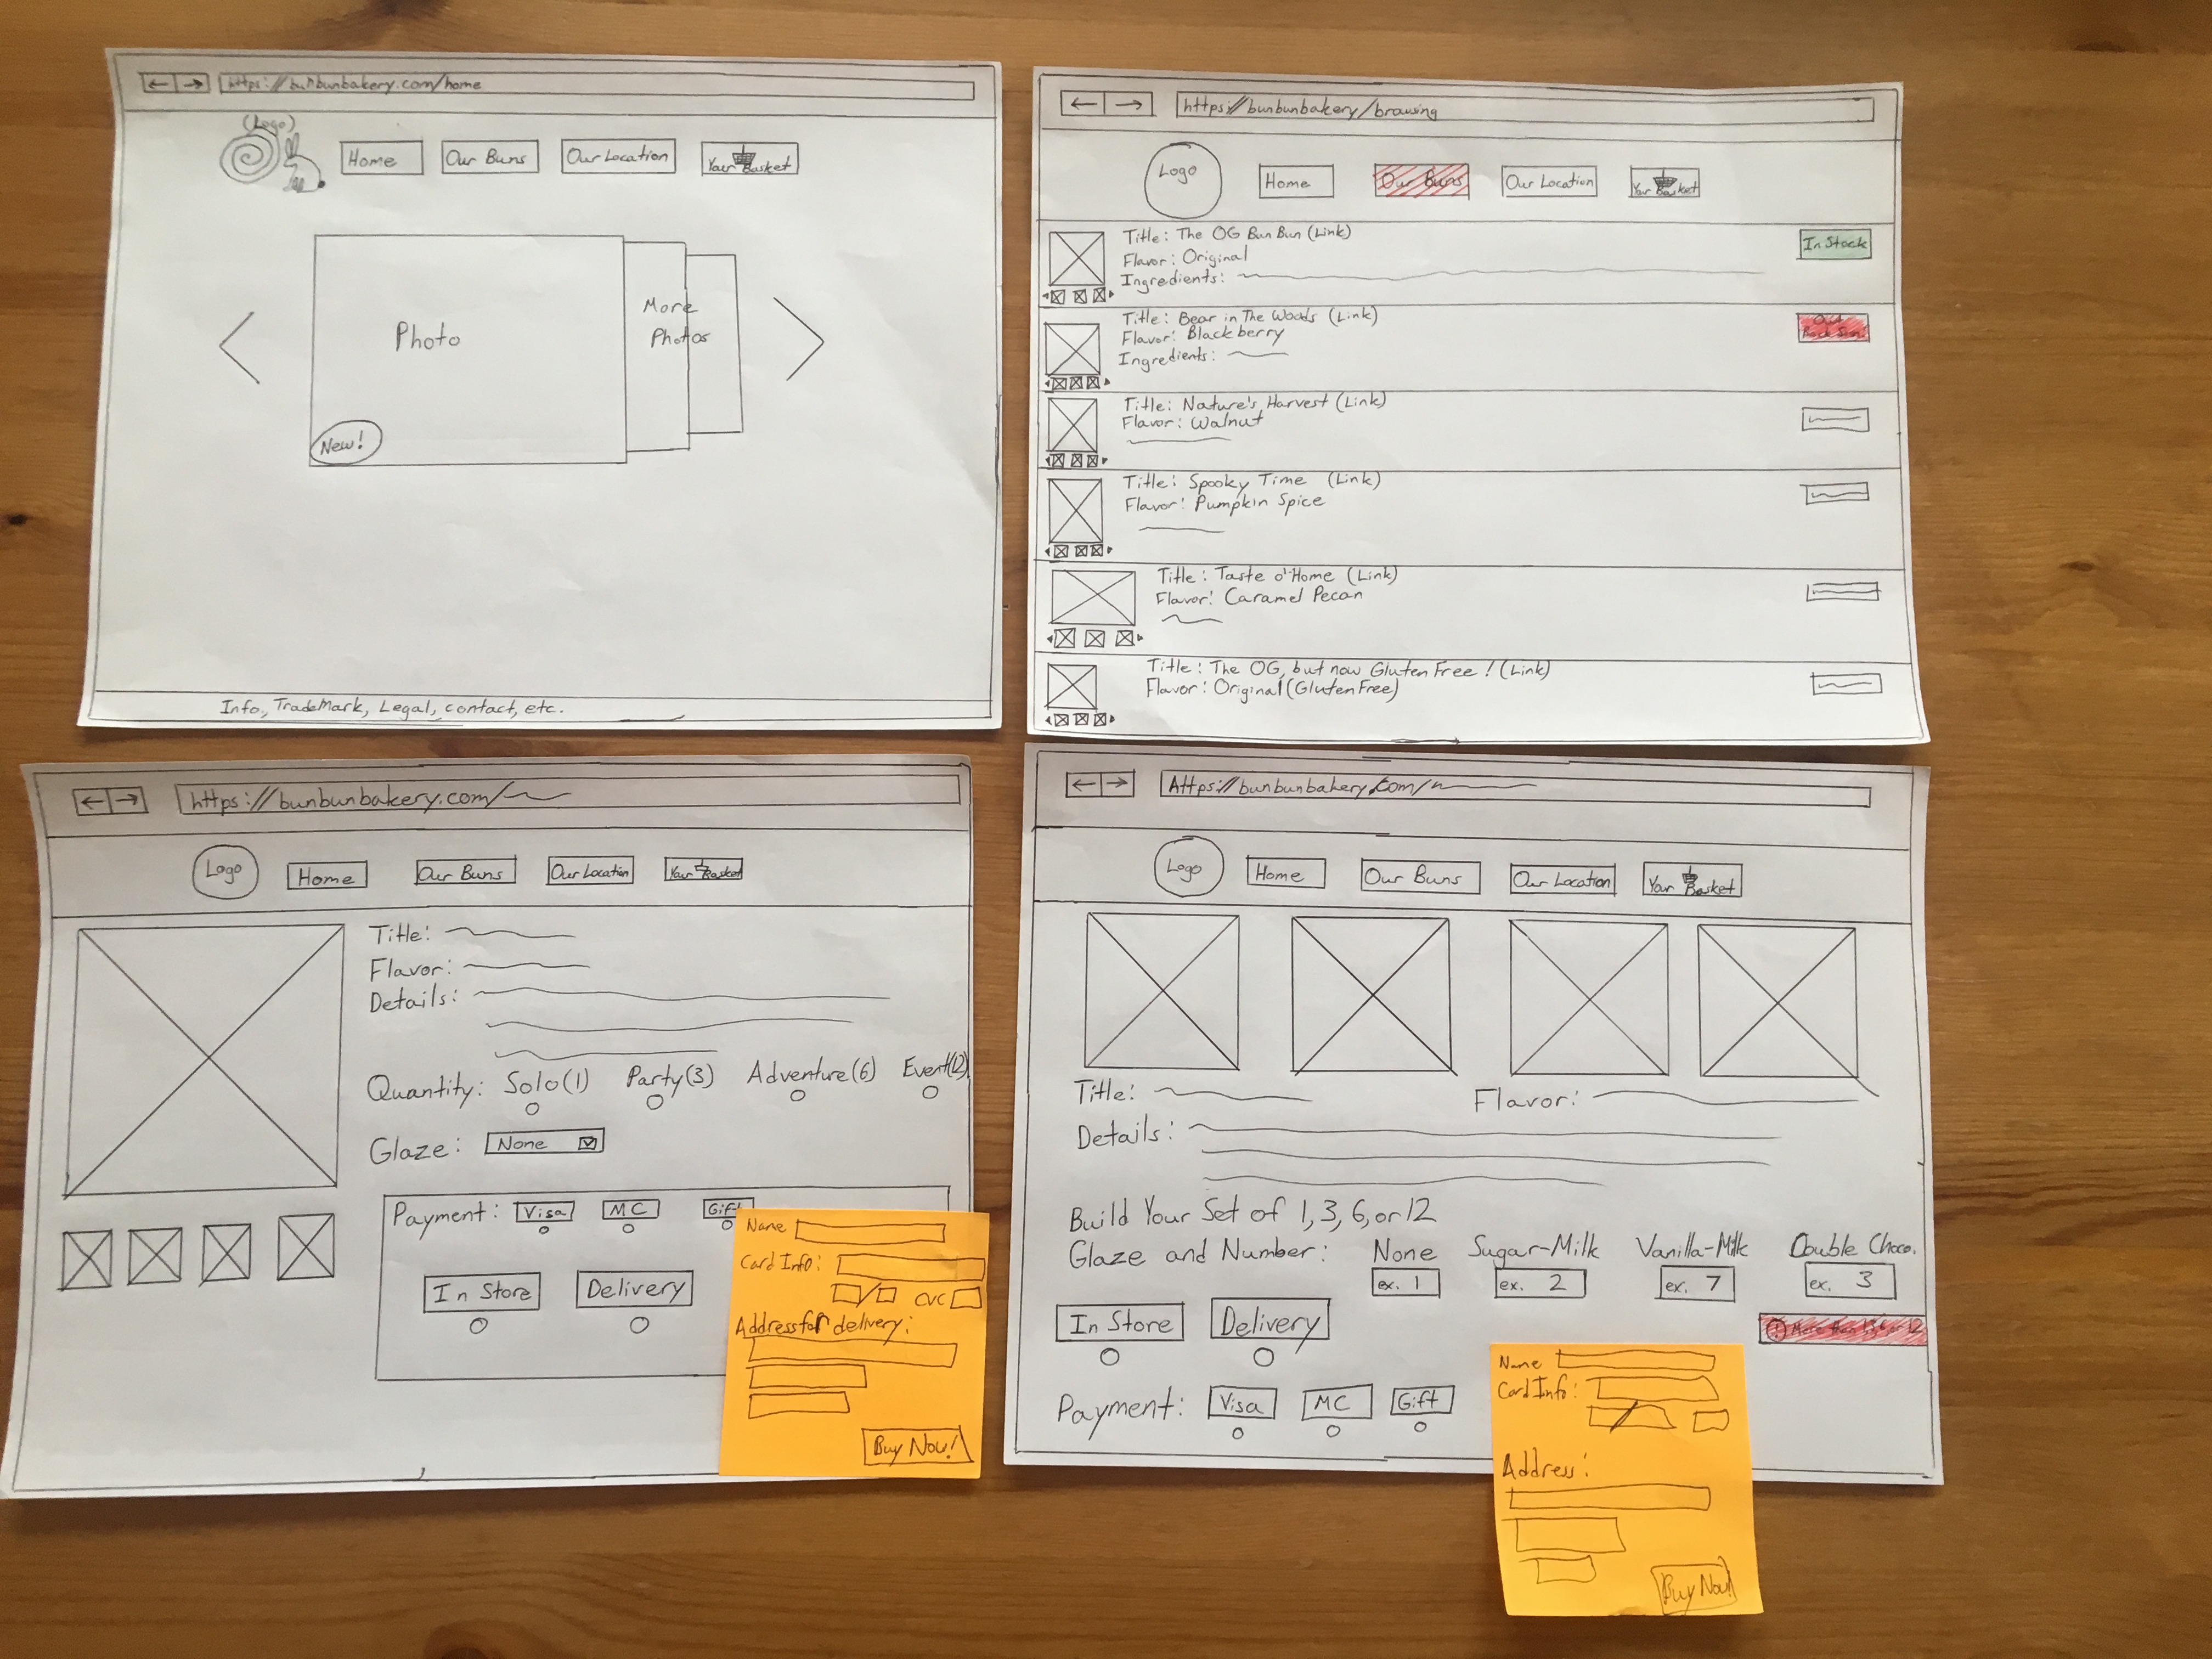 https://bunbunbakery.com/home
(Logo)
Home
Our Buns
Our Location
Your Basket
Photo
More
Photos
New!
Info, TradeMark, Legal, contact, etc.
https://bunbunbakery/browsing
Logo
Home
Our Buns
Our Location
Your Basket
Title: The OG Bun Bun (Link)
In Stock
Flavor: Original
Ingredients:
Title: Bear in The Woods (Link)
Out
Back Soon!
Flavor: Blackberry
Ingredients:
Title: Nature's Harvest (Link)
Flavor: Walnut
Title: Spooky Time (Link)
Flavor: Pumpkin Spice
Title: Taste o' Home (Link)
Flavor: Caramel Pecan
Title: The OG, but now Gluten Free! (Link)
Flavor: Original (Gluten Free)
https://bunbunbakery.com/
Logo
Home
Our Buns
Our Location
Your Basket
Title:
Flavor:
Details:
Quantity: Solo(1) Party(3) Adventure(6) Event(12)
Glaze: None
Payment: Visa MC Gift
In Store Delivery
Name
Card Info:
/ CVC
Address for delivery:
Buy Now!
https://bunbunbakery.com/
Logo
Home
Our Buns
Our Location
Your Basket
Title: Flavor:
Details:
Build Your Set of 1, 3, 6, or 12
Glaze and Number: None Sugar-Milk Vanilla-Milk Double Choco.
ex. 1 ex. 2 ex. 7 ex. 3
In Store Delivery
! More than 1,3,6 or 12
Payment: Visa MC Gift
Name
Card Info:
/
Address:
Buy Now!